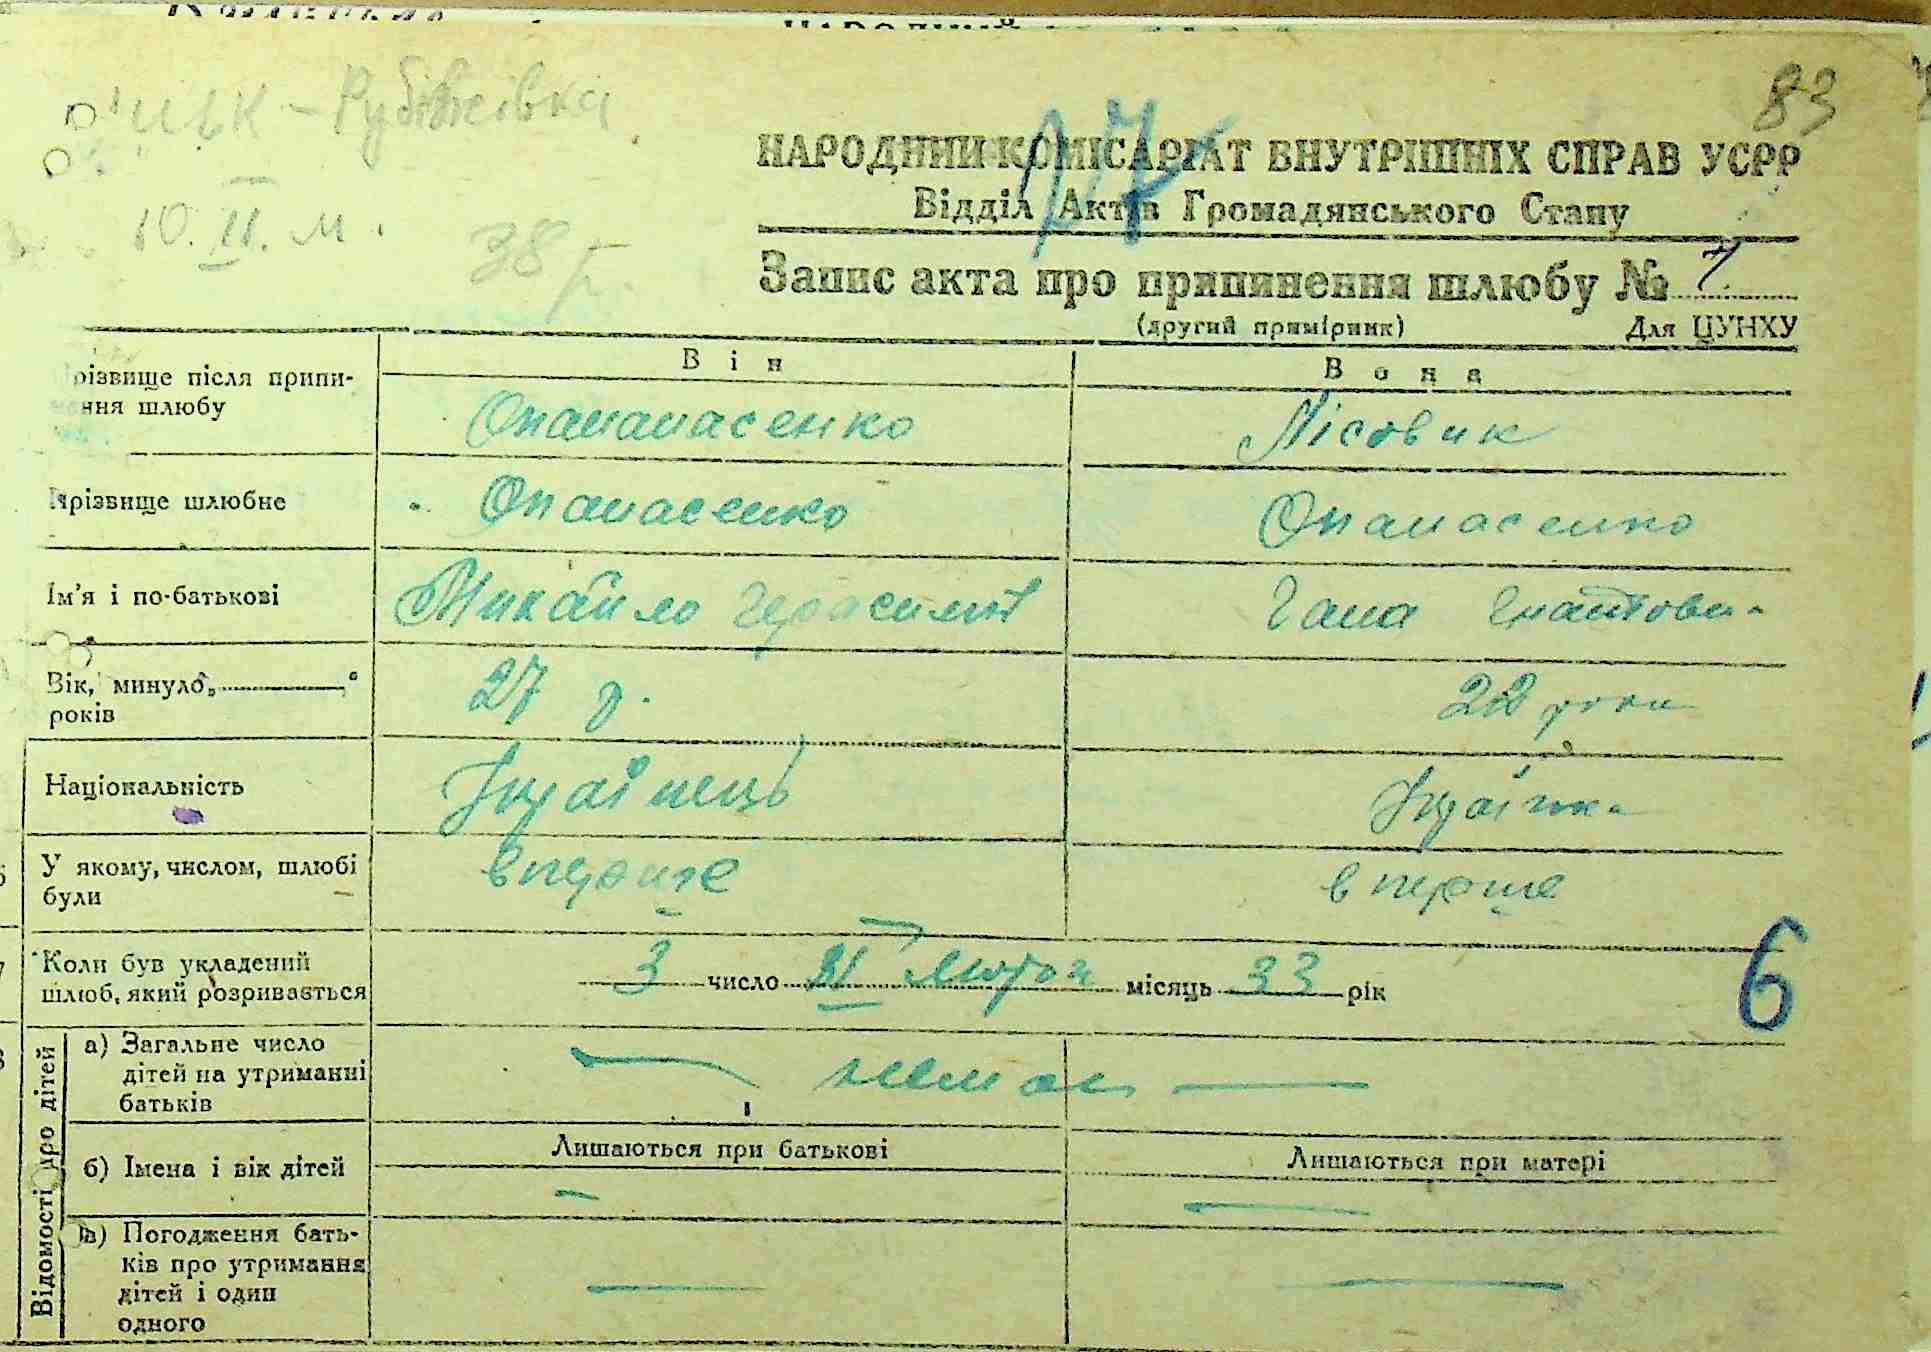 83
Рубіжівка
10. II. м. 38 р.
17
НАРОДНИЙ КОМІСАРІАТ ВНУТРІШНІХ СПРАВ УСРР
Відділ Актів Громадянського Стану
Запис акта про припинення шлюбу № 7.
(другий примірник) Для ЦУНХУ
Він Вона
різвище після припи-
ння шлюбу
Опанамасенко Лісовик
Прізвище шлюбне Опанасенко Опанасенко
Ім'я і по-батькові Михайло Герасимів Гана Гнатови-
Вік, минуло „ “
років
27 р. 22 роки
Національність Українець Українка
У якому, числом, шлюбі
були
вперше вперше
Коли був укладений
шлюб, який розривається
3 число II Лютого місяць 33 рік
6
Відомості про дітей
а) Загальне число
дітей на утриманні
батьків
немає
б) Імена і вік дітей Лишаються при батькові Лишаються при матері
в) Погодження бать-
ків про утримання
дітей і один
одного